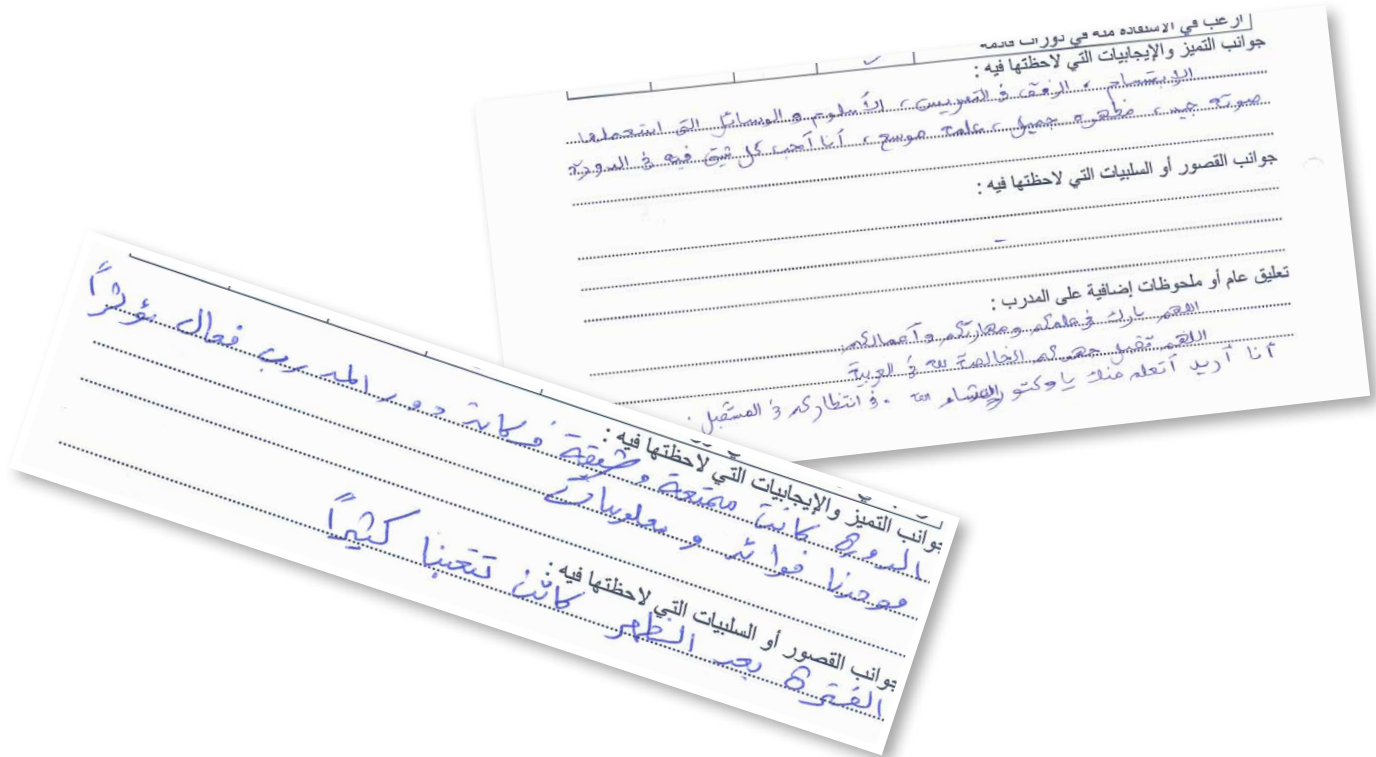 أرغب في الاستفادة منه في دورات قادمة
جوانب التميز والإيجابيات التي لاحظتها فيه :
الابتسام ، الرفق في التدريس ، الأسلوب و الوسائل التي استعملها
صوته جيد ، مظهره جميل ، علمه موسع ، أنا أحب كل شيئ فيه في الدورة
جوانب القصور أو السلبيات التي لاحظتها فيه :
-
تعليق عام أو ملحوظات إضافية على المدرب :
اللهم بارك في علمكم ومهارتكم وأعمالكم
اللهم تقبل جهدكم الخالصة لله في العربية
أنا أريد أتعلم منك يا دكتور الله . في انتظاركم في المستقبل .
جوانب التميز والإيجابيات التي لاحظتها فيه :
الدورة كانت ممتعة و شيقة فكانة دور المدرب فعال مؤثراً
ووجدنا فوائد و معلومات
جوانب القصور أو السلبيات التي لاحظتها فيه :
الفترة بعد الظهر كانت تتعبنا كثيراً